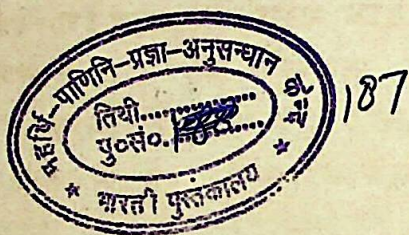 महर्षि-पाणिनि-प्रज्ञा-अनुसन्धान
तिथी..............
पु०सं०
* भारती पुस्तकालय *
187